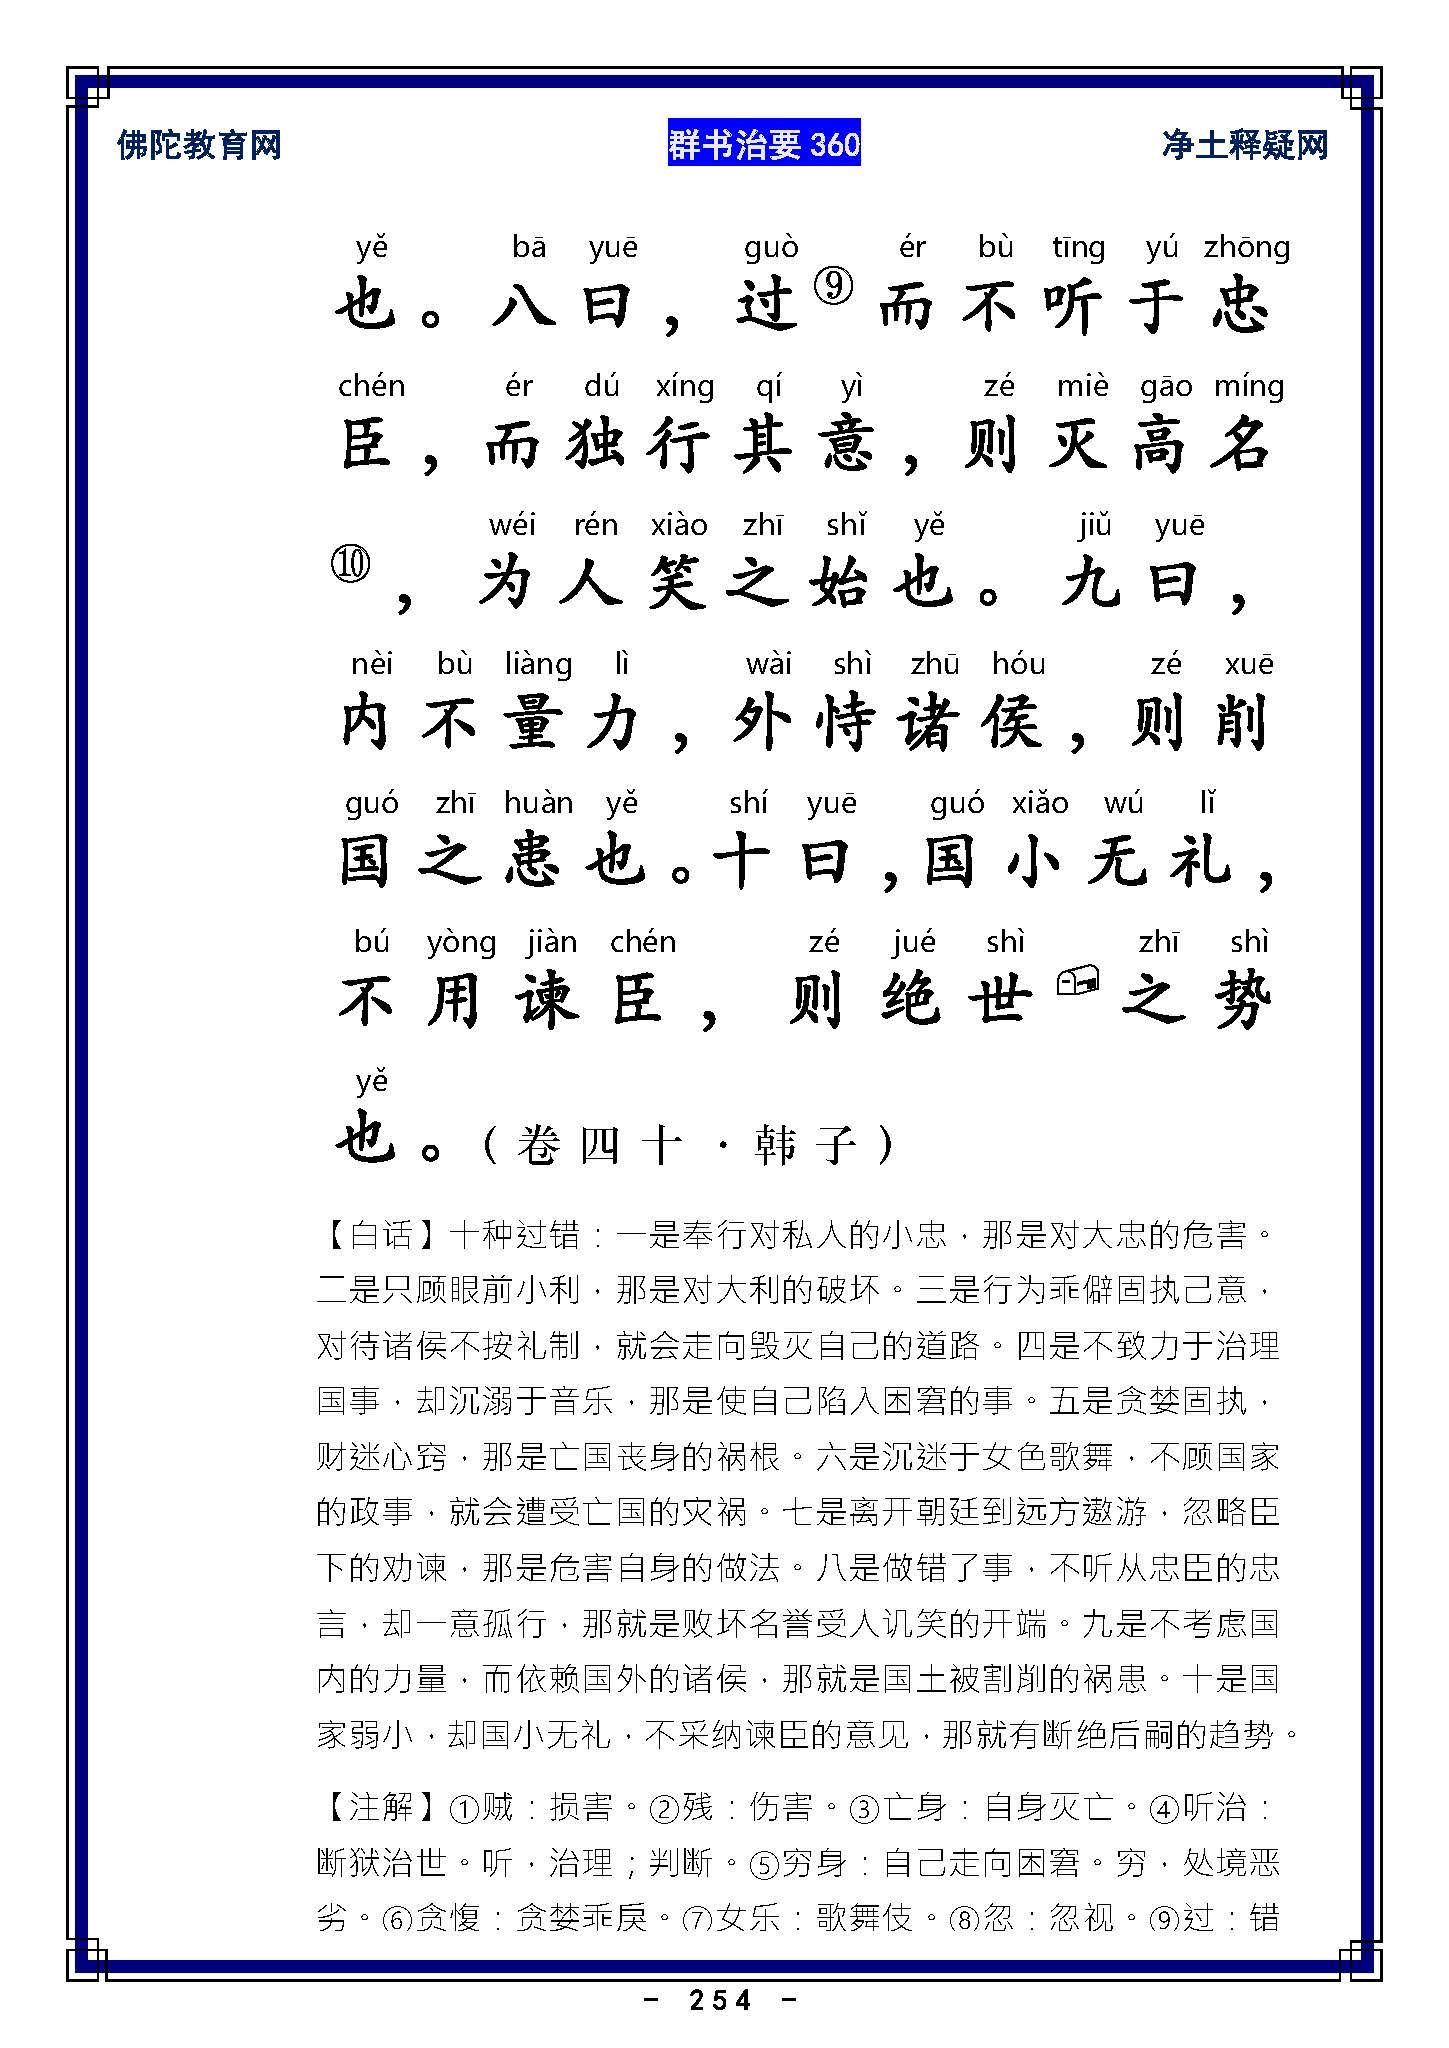 佛陀教育网 群书治要 360 净土释疑网
yě bā yuē guò ér bù tīng yú zhōng
也。八曰，过⑨而不听于忠
chén ér dú xíng qí yì zé miè gāo míng
臣，而独行其意，则灭高名
wéi rén xiào zhī shǐ yě jiǔ yuē
⑩，为人笑之始也。九曰，
nèi bù liàng lì wài shì zhū hóu zé xuē
内不量力，外恃诸侯，则削
guó zhī huàn yě shí yuē guó xiǎo wú lǐ
国之患也。十曰，国小无礼，
bú yòng jiàn chén zé jué shì zhī shì
不用谏臣，则绝世之势
yě
也。（卷四十·韩子）
【白话】十种过错：一是奉行对私人的小忠，那是对大忠的危害。
二是只顾眼前小利，那是对大利的破坏。三是行为乖僻固执己意，
对待诸侯不按礼制，就会走向毁灭自己的道路。四是不致力于治理
国事，却沉溺于音乐，那是使自己陷入困窘的事。五是贪婪固执，
财迷心窍，那是亡国丧身的祸根。六是沉迷于女色歌舞，不顾国家
的政事，就会遭受亡国的灾祸。七是离开朝廷到远方遨游，忽略臣
下的劝谏，那是危害自身的做法。八是做错了事，不听从忠臣的忠
言，却一意孤行，那就是败坏名誉受人讥笑的开端。九是不考虑国
内的力量，而依赖国外的诸侯，那就是国土被割削的祸患。十是国
家弱小，却国小无礼，不采纳谏臣的意见，那就有断绝后嗣的趋势。
【注解】①贼：损害。②残：伤害。③亡身：自身灭亡。④听治：
断狱治世。听，治理；判断。⑤穷身：自己走向困窘。穷，处境恶
劣。⑥贪愎：贪婪乖戾。⑦女乐：歌舞伎。⑧忽：忽视。⑨过：错
- 254 -